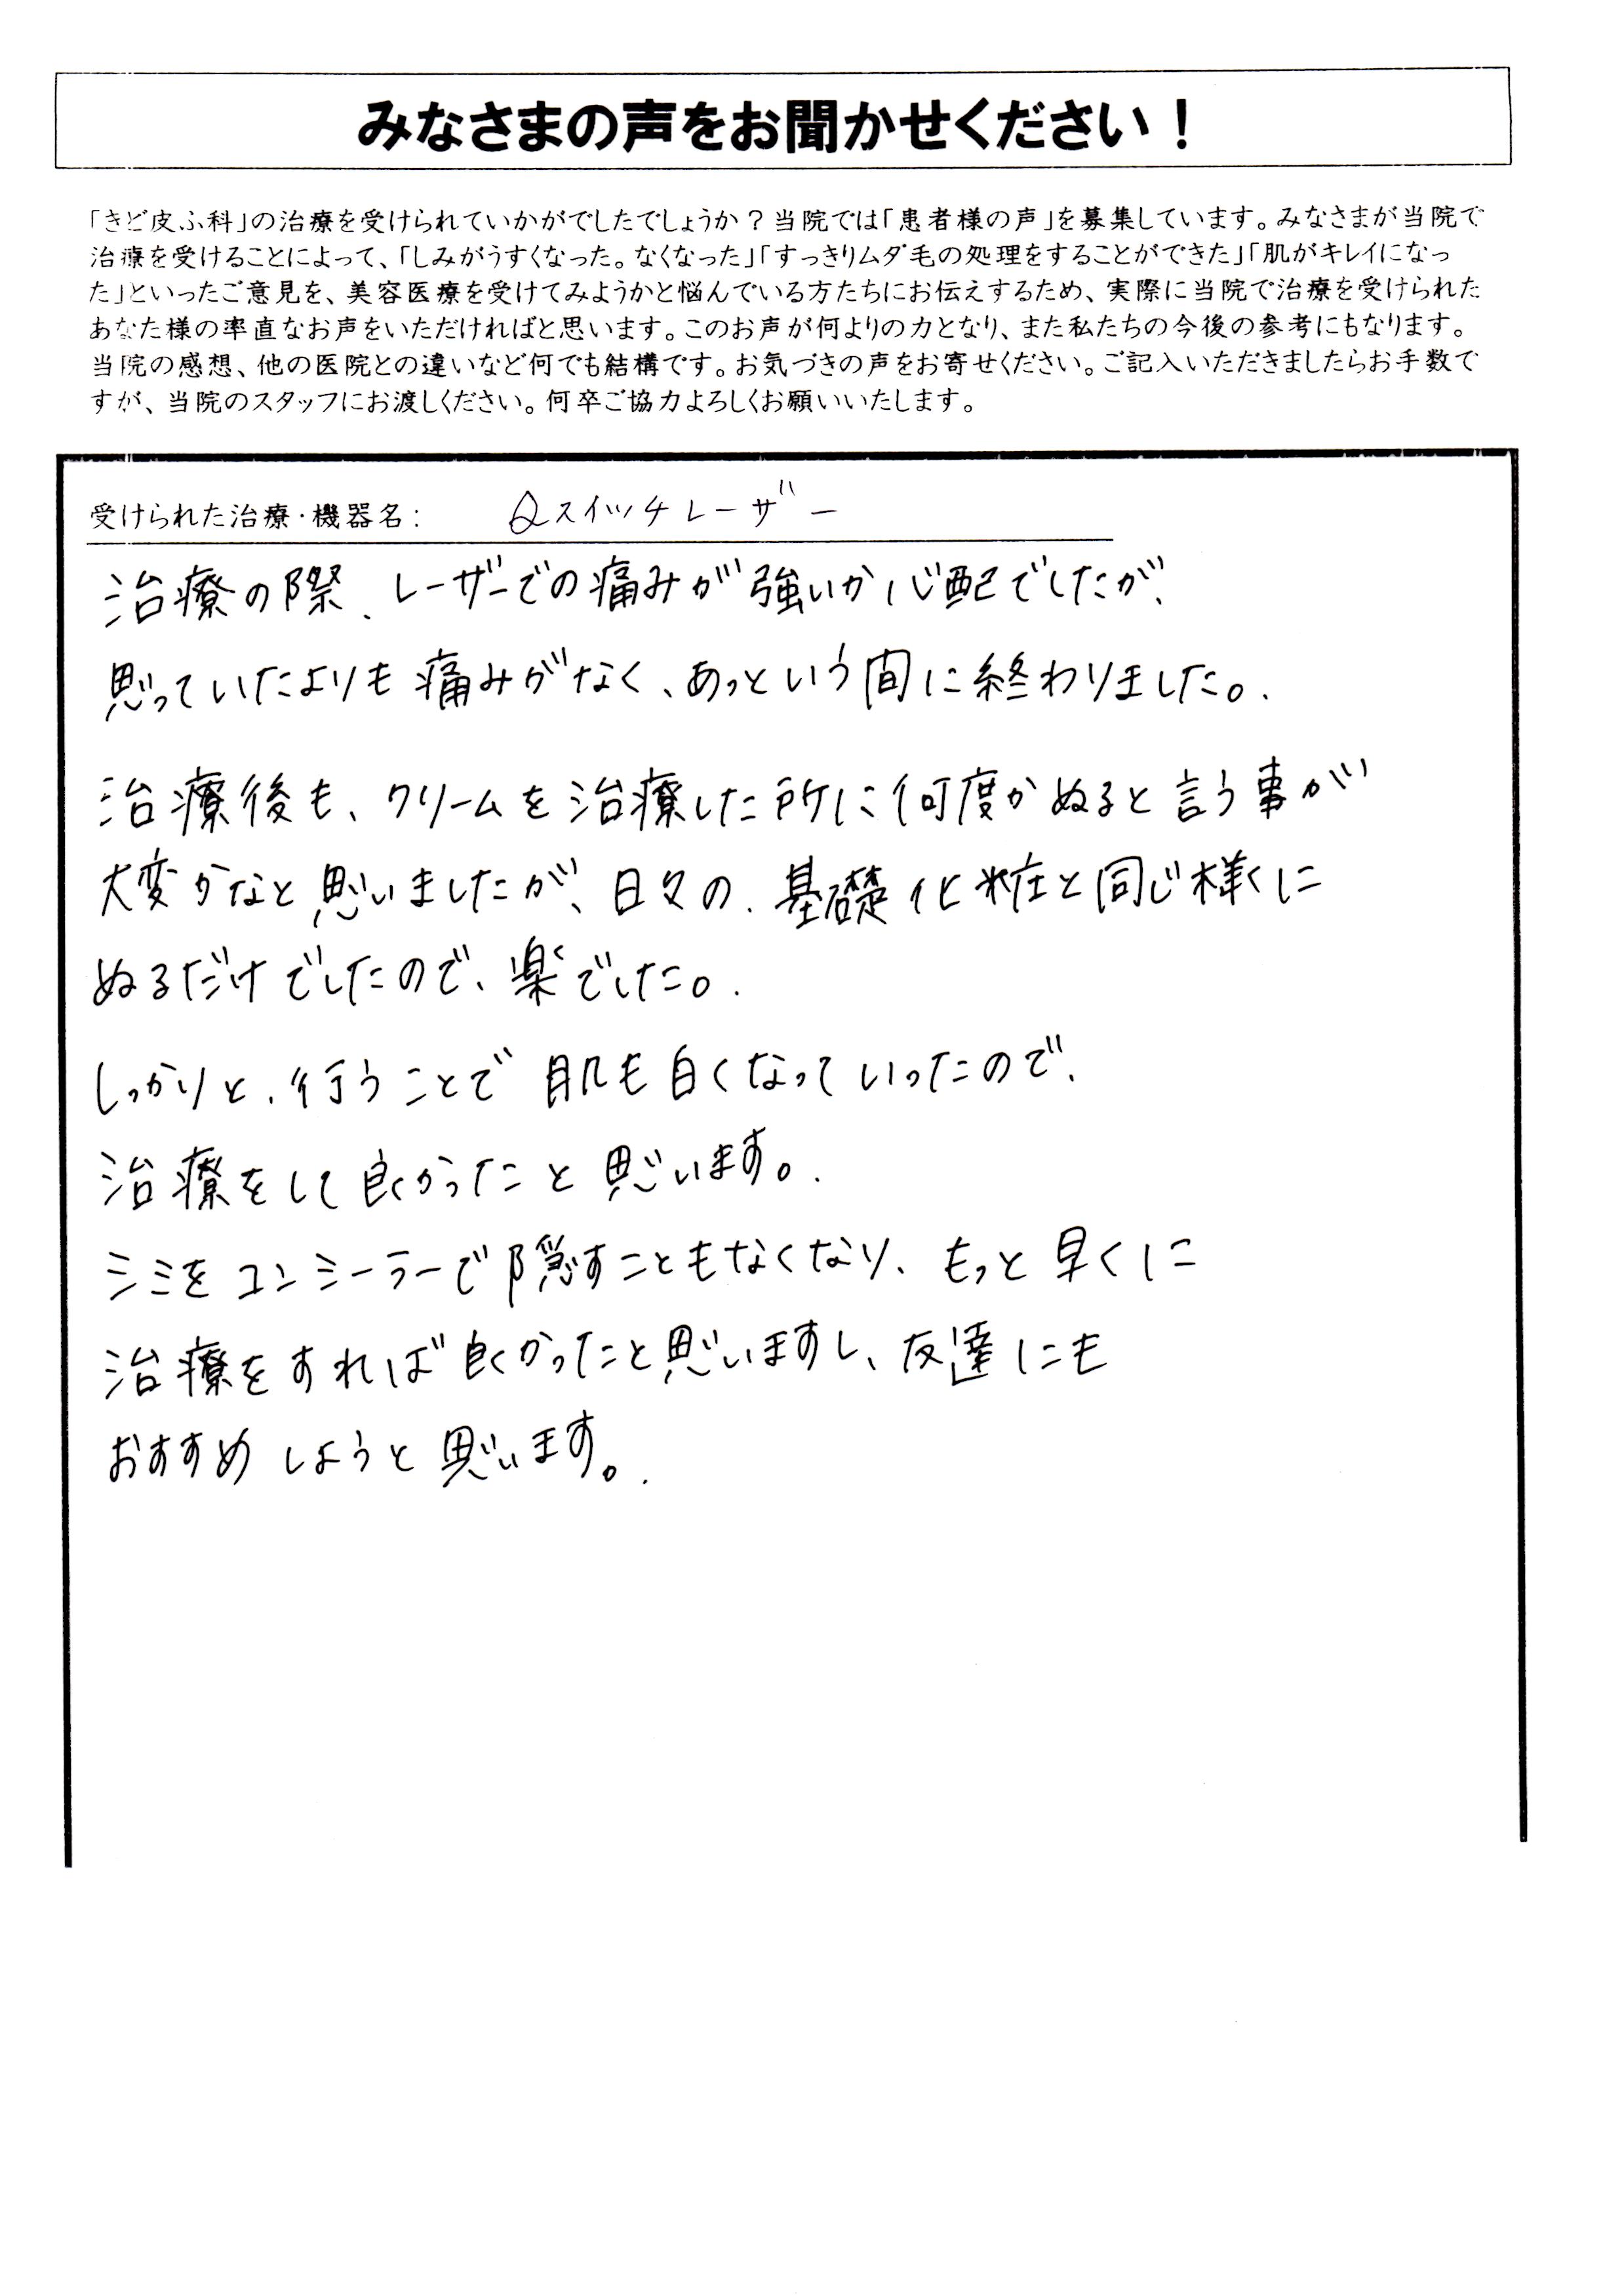 みなさまの声をお聞かせください！
「きど皮ふ科」の治療を受けられていかがでしたでしょうか？当院では「患者様の声」を募集しています。みなさまが当院で
治療を受けることによって、「しみがうすくなった。なくなった」「すっきりムダ毛の処理をすることができた」「肌がキレイになっ
た」といったご意見を、美容医療を受けてみようかと悩んでいる方たちにお伝えするため、実際に当院で治療を受けられた
あなた様の率直なお声をいただければと思います。このお声が何よりの力となり、また私たちの今後の参考にもなります。
当院の感想、他の医院との違いなど何でも結構です。お気づきの声をお寄せください。ご記入いただきましたらお手数で
すが、当院のスタッフにお渡しください。何卒ご協力よろしくお願いいたします。
受けられた治療・機器名： Qスイッチレーザー
治療の際、レーザーでの痛みが強いか心配でしたが、
思っていたよりも痛みがなく、あっという間に終わりました。
治療後も、クリームを治療した所に何度かぬると言う事が
大変かなと思いましたが、日々の、基礎化粧と同じ様くに
ぬるだけでしたので、楽でした。
しっかりと、行うことで肌も白くなっていったので、
治療をして良かったこと思います。
シミをコンシーラーで隠すこともなくなり、もっと早くに
治療をすれば良くかったと思いますし、友達にも
おすすめしようと思います。